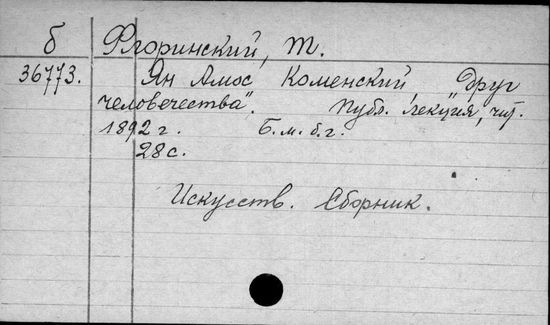 б Флоринский, Т.
36773. Ян Амос Коменский, „Друг
человечества“. Публ. лекция, чит.
1892 г. Б. м. б. г.
28 с.
Искусств. Сборник.